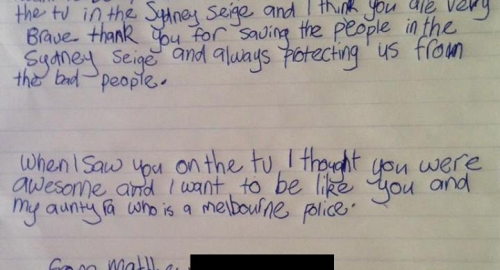 the tv in the Sydney Seige and I think you are very
Brave thank you for saving the people in the
Sydney Seige and always protecting us from
the bad people.
When I Saw you on the tv I thought you were
awesome and I want to be like you and
my aunty who is a melbourne police.
from